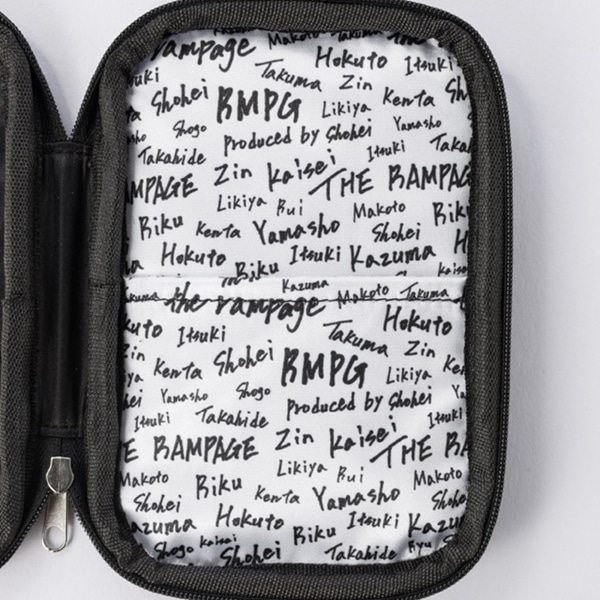 the rampage Makoto Takuma
Takuma Hokuto Itsuki
Shohei RMPG Zin Kenta Sh
Shogo produced by Shohei Likiya Yamasho
Takahide Itsuki Taka
MPAGE Zin Kaisei THE RAMPAG
Likiya Rui Makoto Rik
Riku Kenta Yamasho Shohei
Hokuto Riku Itsuki Kazuma
Kazuma Kaise
the rampage Makoto Takuma
uto Itsuki Takuma Hokuto
Kenta Shohei RMPG Zin
Yamasho Shogo produced by Shohei Likiya
Itsuki Takahide
E RAMPAGE Zin Kaisei THE RA
Makoto Likiya Rui Makoto
Shohei Riku Kenta Yamasho Shohe
azuma Hokuto Riku Itsuki Kazu
Shogo Kaisei Shohei Takahide Ryu